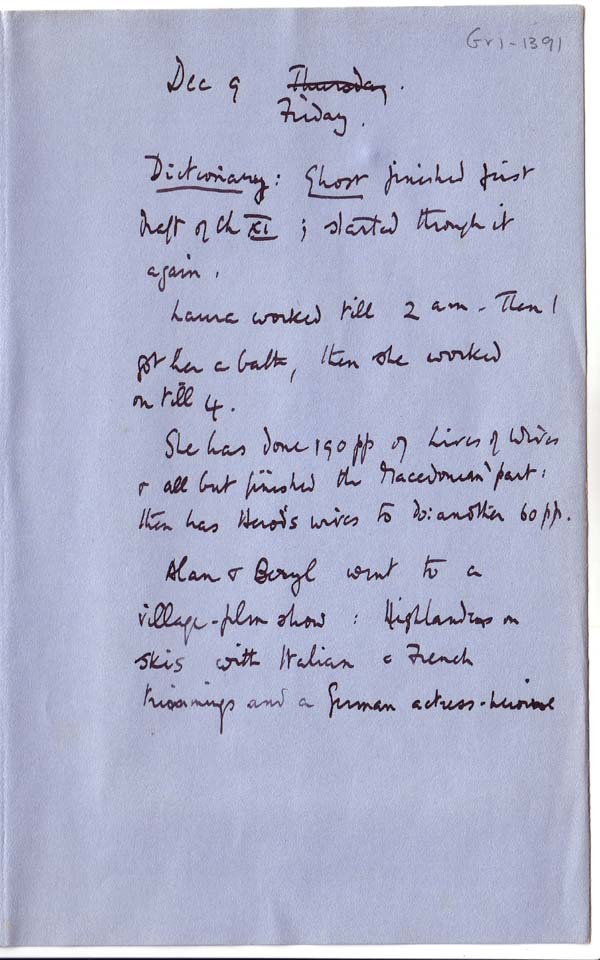 Gr1-1391
Dec 9 Thursday.
Friday.
Dictionary: Ghost finished first
draft of Ch XI ; started through it
again.
Laura worked till 2 am. Then I
got her a bath, then she worked
on till 4.
She has done 190 pp of Lives of Wives
& all but finished the Macedonian part:
then has Herod's wives to do: another 60 pp.
Alan & Beryl went to a
village-film show : Highlanders on
skis with Italian & French
trimmings and a German actress-heroine